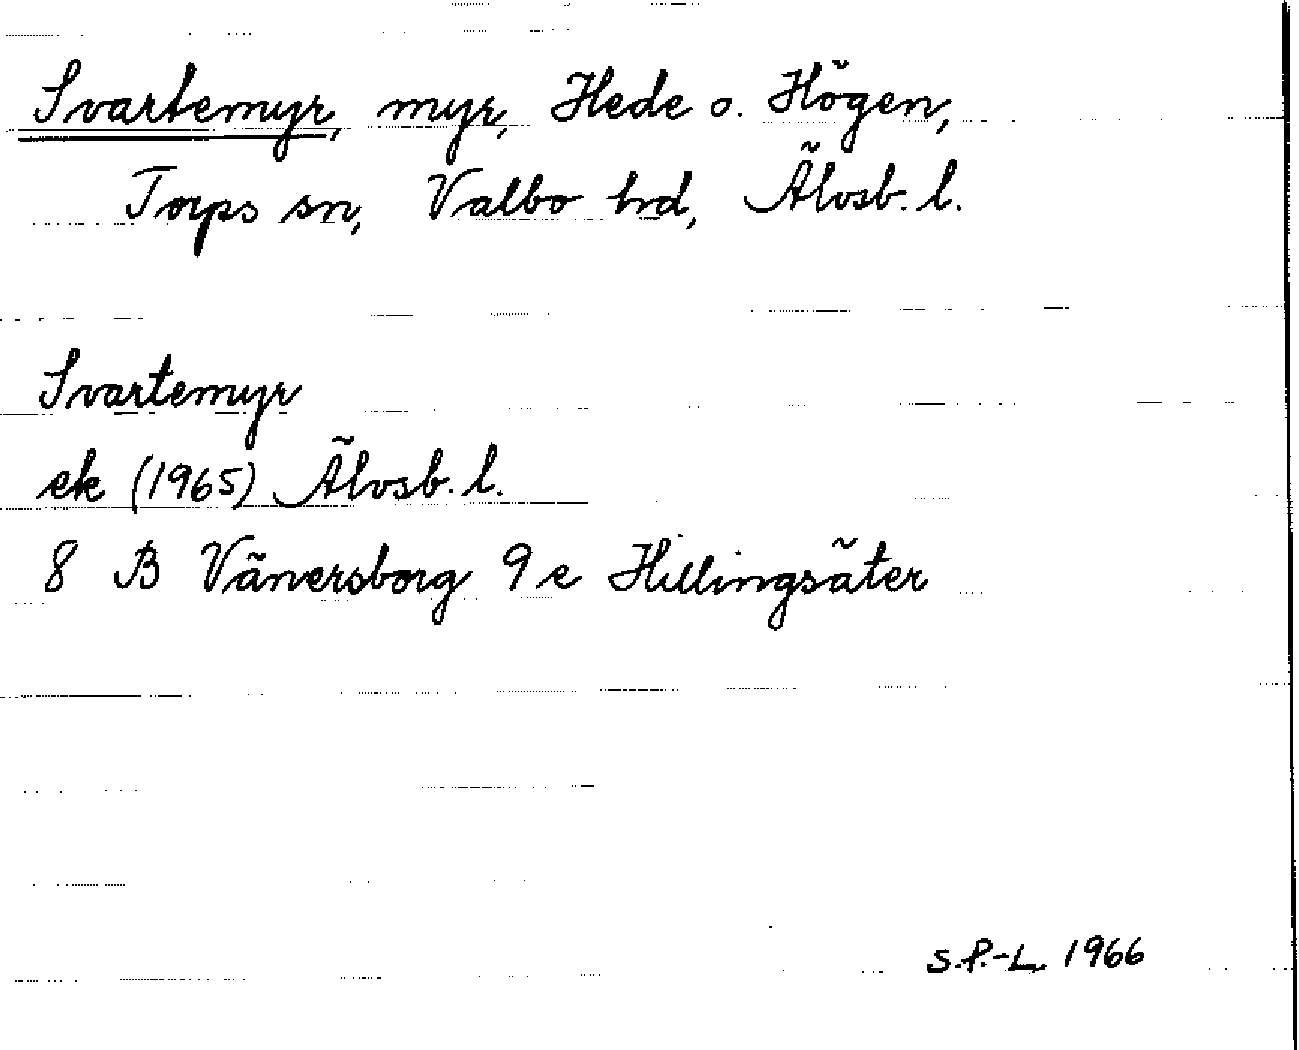 Svartemyr, myr, Hede o. Högen,
Torps sn, Valbo hd, Älvsb. l.
Svartemyr
ek (1965) Älvsb. l.
8 B Vänersborg 9 e Hillingsäter
S.P.-L. 1966